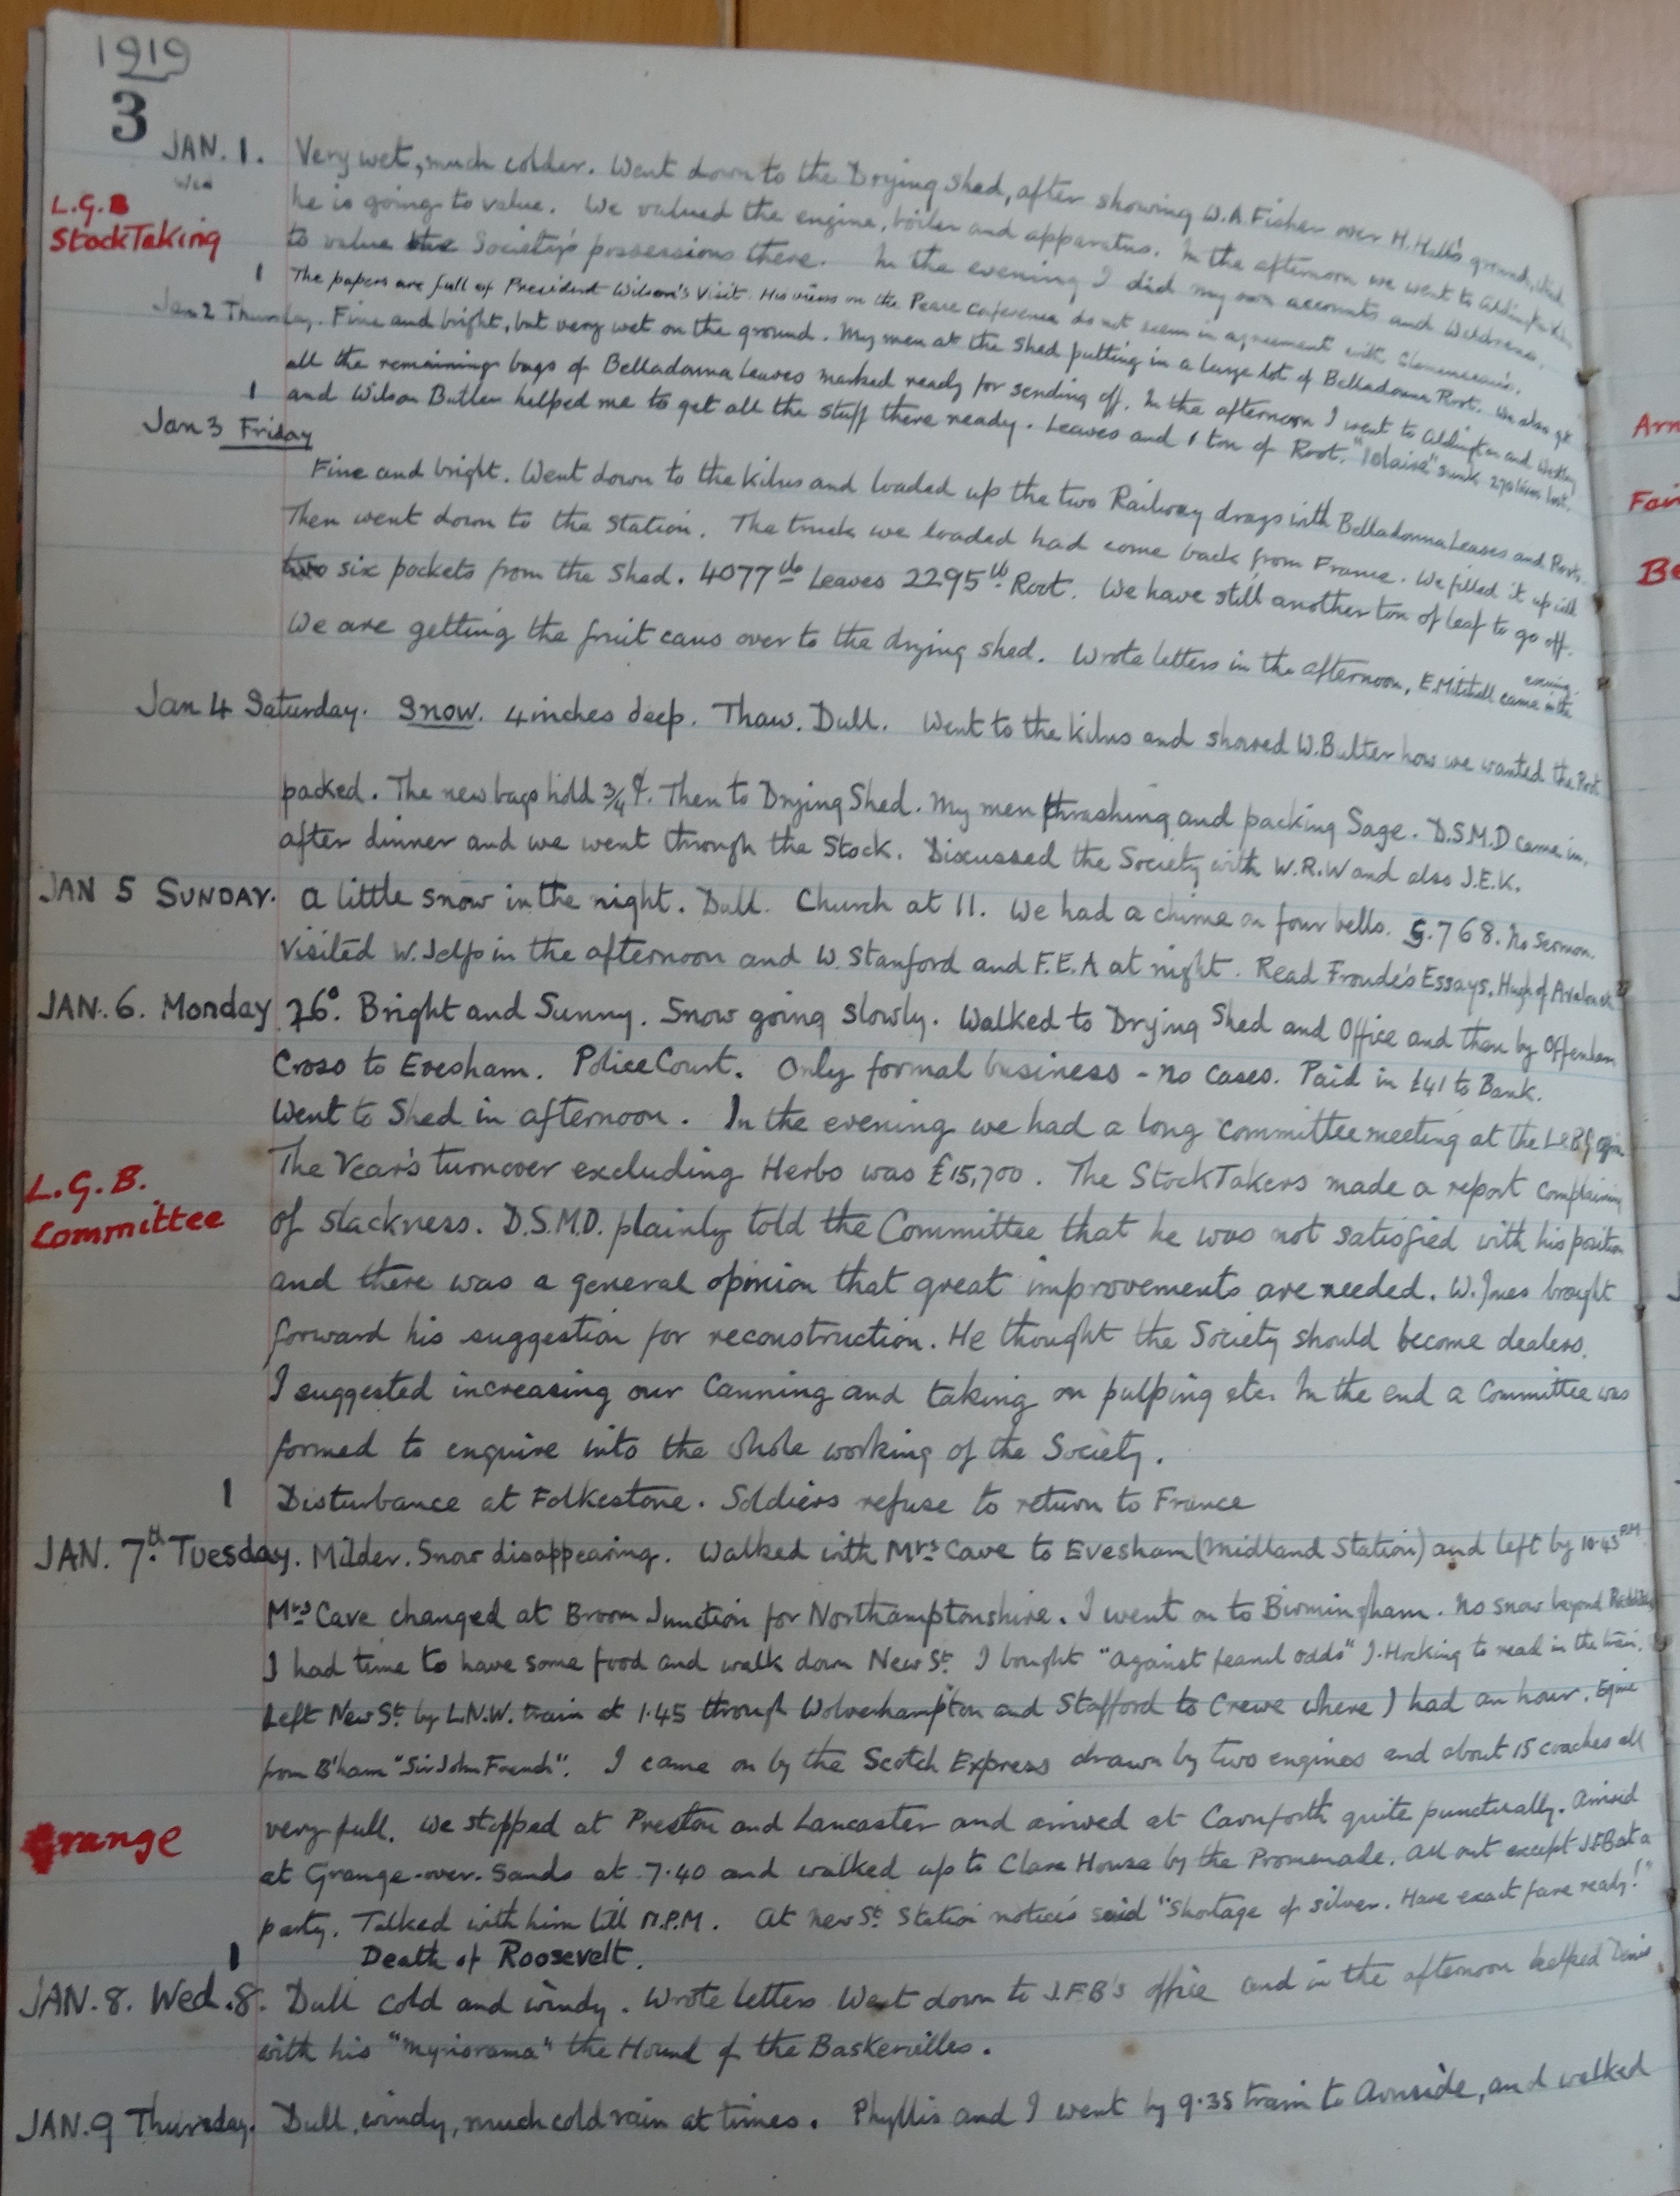 1919
3
JAN. 1. Very wet, much colder. Went down to the Drying Shed, after showing W.A. Fisher over H. Hall's ground, which
Wed
L.G.B he is going to value. We valued the engine, boiler and apparatus. In the afternoon we went to Aldington Kilns
StockTaking to value the Society's possessions there. In the evening I did my own accounts and
1 The papers are full of President Wilson's Visit. His views on the Peace conference do not seem in agreement with Clemenceau's.
Jan 2 Thursday. Fine and bright, but very wet on the ground. My men at the Shed putting in a large lot of Belladonna Root. We also got
all the remaining bags of Belladonna Leaves marked ready for sending off. In the afternoon I went to Aldington and Westley
1 and Wilson Butler helped me to get all the stuff there ready. Leaves and 1 ton of Root. "Iolaire" sunk 270 lives lost.
Jan 3 Friday
Fine and bright. Went down to the kilns and loaded up the two Railway drays with Belladonna Leaves and Root.
Then went down to the Station. The truck we loaded had come back from France. We filled it up with
two six pockets from the Shed. 4077 lb Leaves 2295 lb Root. We have still another ton of leaf to go off.
We are getting the fruit cans over to the drying shed. Wrote letters in the afternoon, E. Mitchell came in the
evening.
Jan 4 Saturday. Snow. 4 inches deep. Thaw. Dull. Went to the kilns and showed W. Butler how we wanted the Root
packed. The new bags hold 3/4 c. Then to Drying Shed. My men thrashing and packing Sage. D.S.M.D came in
after dinner and we went through the Stock. Discussed the Society with W.R.W and also J.E.K.
JAN 5 SUNDAY. A little snow in the night. Dull. Church at 11. We had a chime on four bells. S.768. No Sermon.
Visited W. Jelfs in the afternoon and W. Stanford and F.E.A at night. Read Froude's Essays, Hugh of Avalon
JAN. 6. Monday 26°. Bright and Sunny. Snow going slowly. Walked to Drying Shed and Office and then by Offenham
Cross to Evesham. Police Court. Only formal business - no cases. Paid in £41 to Bank.
Went to Shed in afternoon. In the evening we had a long committee meeting at the
The Year's turnover excluding Herbs was £15,700. The StockTakers made a report complaining
L.G.B.
Committee of slackness. D.S.M.D. plainly told the Committee that he was not satisfied with his position
and there was a general opinion that great improvements are needed. W. Jones brought
forward his suggestion for reconstruction. He thought the Society should become dealers.
I suggested increasing our Canning and taking on pulping etc. In the end a Committee was
formed to enquire into the whole working of the Society.
1 Disturbance at Folkestone. Soldiers refuse to return to France
JAN. 7th. Tuesday. Milder. Snow disappearing. Walked with Mrs Cave to Evesham (Midland Station) and left by 10.45
Mrs Cave changed at Broom Junction for Northamptonshire. I went on to Birmingham. No snow beyond Redditch
I had time to have some food and walk down New St. I bought "Against fearful odds" J. Hocking to read in the train.
Left New St. by L.N.W. train at 1.45 through Wolverhampton and Stafford to Crewe where I had an hour. Engine
from B'ham "Sir John French". I came on by the Scotch Express drawn by two engines and about 15 coaches all
very full. We stopped at Preston and Lancaster and arrived at Carnforth quite punctually. Arrived
Grange at Grange-over-Sands at 7.40 and walked up to Clare House by the Promenade. All out except J.F.B at a
party. Talked with him till 11.P.M. At New St. Station notices said "Shortage of silver. Have exact fare ready!"
1 Death of Roosevelt.
JAN. 8. Wed. 8. Dull cold and windy. Wrote letters. Went down to J.F.B's office and in the afternoon helped Denis
with his "Myriorama" the Hound of the Baskervilles.
JAN. 9 Thursday. Dull, windy, much cold rain at times. Phyllis and I went by 9.35 train to Arnside, and walked